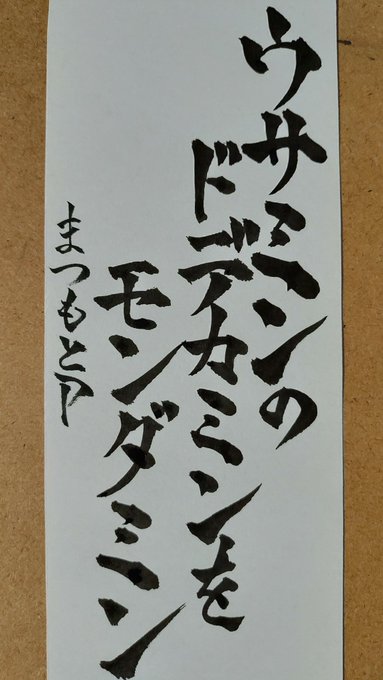 ウサミンの
ドデカミンを
モンダミン
まつもとP